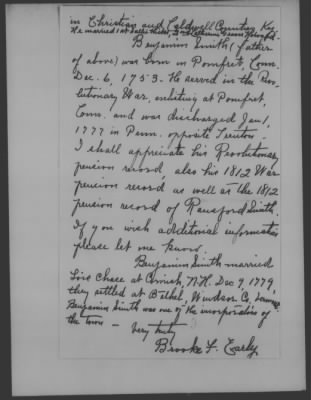 in Christian and Caldwell Counties Ky.
He married 1st Sally Hicks, 2
Benjamin Smith (father
of above) was born in Pomfret, Conn.
Dec. 6, 1753. He served in the Rev-
olutionary War, enlisting at Pomfret,
Conn. and was discharged Jan 1,
1777 in Penn. opposite Trenton.
I shall appreciate his Revolutionary
pension record, also his 1812 War
pension record as well as the 1812
pension record of Ransford Smith.
If you wish additional information
please let me know.
Benjamin Smith married
Lois Chase at Cornish, N.H. Dec 9, 1779,
they settled at Bethel, Windsor Co,
Benjamin Smith was one of the incorporators of
the town — Very truly
Brooke F. Early